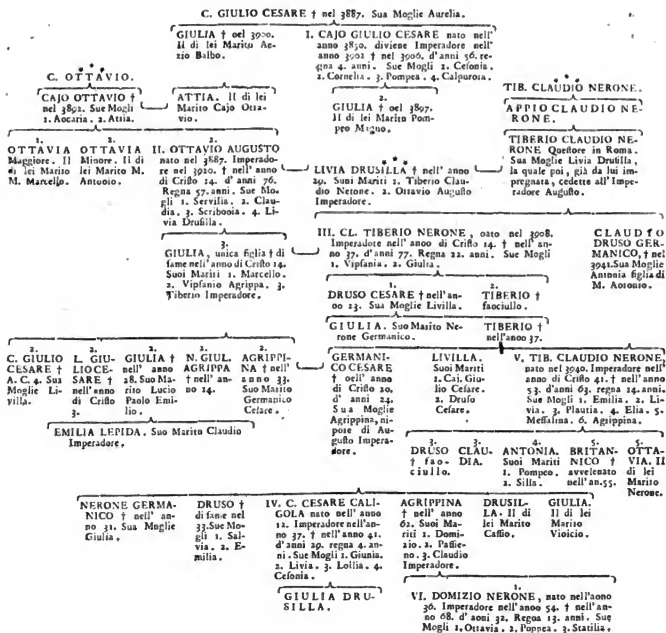 C. GIULIO CESARE † nel 3887. Sua Moglie Aurelia.
GIULIA † nel 3900.
Il di lei Marito Aezio Balbo.
I. CAJO GIULIO CESARE nato nell'
anno 3850. diviene Imperadore nell'
anno 3902 † nel 3906. d'anni 56. re-
gna 4. anni. Sue Mogli 1. Cesonia,
2. Cornelia. 3. Pompea. 4. Calpurnia.
C. OTTAVIO.
CAJO OTTAVIO †
nel 3892. Sue Mogli
1. Ancaria. 2. Attia.
ATTIA. Il di lei
Marito Cajo Otta-
vio.
2.
GIULIA † nel 3897.
Il di lei Marito Pom-
peo Magno.
TIB. CLAUDIO NERONE.
APPIO CLAUDIO NE-
RONE.
TIBERIO CLAUDIO NE-
RONE Questore in Roma.
Sua Moglie Livia Drusilla,
la quale poi, già da lui im-
pregnata, cedette all'Impe-
radore Augusto.
1.
OTTAVIA
Maggiore. Il
di lei Marito
M. Marcello.
2.
OTTAVIA
Minore. Il di
lei Marito M.
Antonio.
2.
II. OTTAVIO AUGUSTO
nato nel 3887. Imperado-
re nel 3920. † nell'anno
di Cristo 14. d'anni 76.
Regna 57. anni. Sue Mo-
gli 1. Servilia. 2. Clau-
dia. 3. Scribonia. 4. Li-
via Drusilla.
LIVIA DRUSILLA † nell'anno
29. Suoi Mariti 1. Tiberio Clau-
dio Nerone. 2. Ottavio Augusto
Imperadore.
3.
GIULIA, unica figlia † di
fame nell'anno di Cristo 14.
Suoi Mariti 1. Marcello.
2. Vipsanio Agrippa. 3.
Tiberio Imperadore.
III. CL. TIBERIO NERONE, nato nel 3908.
Imperadore nell'anno di Cristo 14. † nell'an-
no 37. d'anni 77. Regna 22. anni. Sue Mogli
1. Vipsania. 2. Giulia.
CLAUDIO
DRUSO GER-
MANICO, † nel
3941. Sua Moglie
Antonia figlia di
M. Antonio.
1.
DRUSO CESARE † nell'an-
no 23. Sua Moglie Livilla.
2.
TIBERIO †
fanciullo.
GIULIA. Suo Marito Ne-
rone Germanico.
TIBERIO †
nell'anno 37.
2.
C. GIULIO
CESARE †
A. C. 4. Sua
Moglie Li-
villa.
2.
L. GIU-
LIO CE-
SARE †
nell'anno
di Cristo
3.
2.
GIULIA †
nell'anno
28. Suo Ma-
rito Lucio
Paolo Emi-
lio.
2.
N. GIUL.
AGRIPPA
† nell'an-
no 14.
2.
AGRIPPI-
NA † nell'
anno 33.
Suo Marito
Germanico
Cesare.
EMILIA LEPIDA. Suo Marito Claudio
Imperadore.
GERMANI-
CO CESARE
† nell'anno
di Cristo 20.
d'anni 24.
Sua Moglie
Agrippina, ni-
pote di Au-
gusto Impera-
dore.
LIVILLA.
Suoi Mariti
1. Cai. Giu-
lio Cesare.
2. Druso
Cesare.
V. TIB. CLAUDIO NERONE,
nato nel 3940. Imperadore nell'
anno di Cristo 41. † nell'anno
53. d'anni 63. regna 14. anni.
Sue Mogli 1. Emilia. 2. Li-
via. 3. Plautia. 4. Elia. 5.
Messalina. 6. Agrippina.
3.
DRUSO
† fan-
ciullo.
3.
CLAU-
DIA.
4.
ANTONIA.
Suoi Mariti
1. Pompeo.
2. Silla.
5.
BRITAN-
NICO †
avvelenato
nell'an. 55.
5.
OTTA-
VIA. Il
di lei
Marito
Nerone.
NERONE GERMA-
NICO † nell' an-
no 31. Sua Moglie
Giulia.
DRUSO †
di fame nel
33. Sue Mo-
gli 1. Sal-
via. 2. E-
milia.
IV. C. CESARE CALI-
GOLA nato nell' anno
12. Imperadore nell'an-
no 37. † nell'anno 41.
d'anni 29. regna 4. an-
ni. Sue Mogli 1. Giunia.
2. Livia. 3. Lollia. 4.
Cesonia.
AGRIPPINA
† nell' anno
62. Suoi Ma-
riti 1. Domi-
zio. 2. Passie-
no. 3. Claudio
Imperadore.
DRUSIL-
LA. Il di
lei Marito
Cassio.
GIULIA.
Il di lei
Marito
Vinicio.
GIULIA DRU-
SILLA.
1.
VI. DOMIZIO NERONE, nato nell'anno
36. Imperadore nell'anno 54. † nell'an-
no 68. d'anni 32. Regna 13. anni. Sue
Mogli 1. Ottavia. 2. Poppea. 3. Statilia.